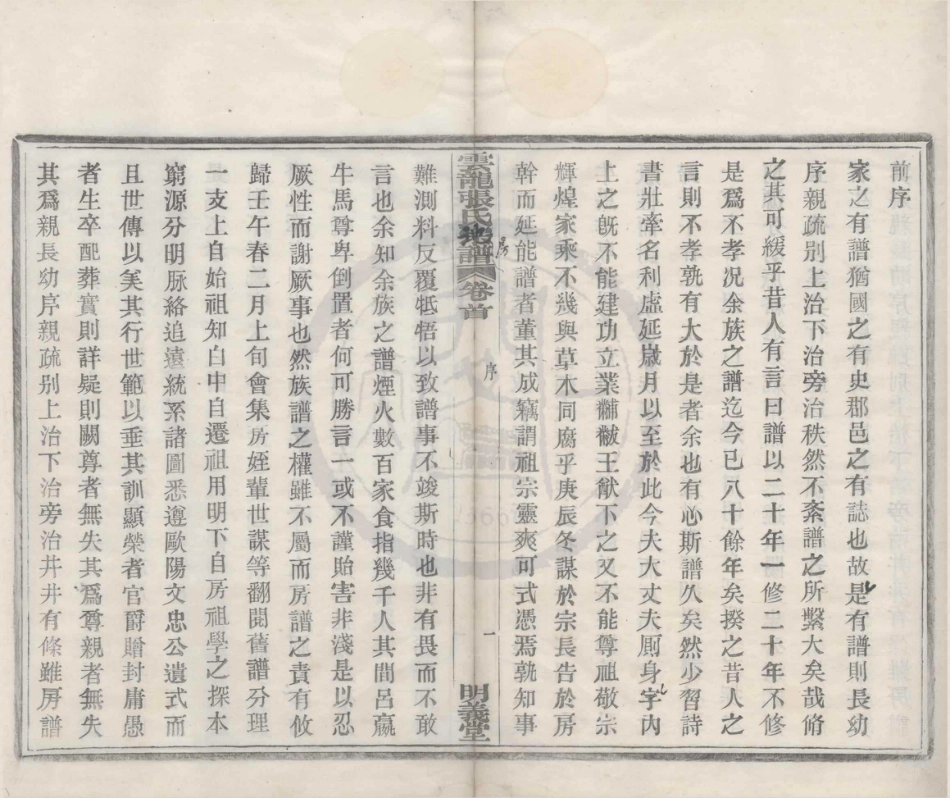 前序
家之有譜猶國之有史郡邑之有誌也故是有譜則長幼
序親疏別上治下治旁治秩然不紊譜之所繫大矣哉脩
之其可緩乎昔人有言曰譜以二十年一修三十年不修
是爲不孝况余族之譜迄今已八十餘年矣揆之昔人之
言則不孝孰有大於是者余也有心斯譜久矣然少習詩
書壯牽名利虛延歲月以至於此今夫大丈夫厠身字內
上之旣不能建功立業黼黻王猷下之又不能尊祖敬宗
輝煌家乘不幾與草木同腐乎庚辰冬謀於宗長告於房
幹而延能譜者董其成竊謂祖宗靈爽可式憑焉孰知事
雲龍張氏譜 卷首 序 一 明義堂
難測料反覆牴牾以致譜事不竣斯時也非有畏而不敢
言也余知余族之譜煙火數百家食指幾千人其間呂嬴
牛馬尊卑倒置者何可勝言一或不謹貽害非淺是以忍
厥性而謝厥事也然族譜之權雖不屬而房譜之責有攸
歸壬午春二月上旬會集房姪輩世謀等翻閱舊譜分理
一支上自始祖知白中自遷祖用明下自房祖學之探本
窮源分明脉絡追遠統系諸圖悉遵歐陽文忠公遺式而
且世傳以美其行世範以垂其訓顯榮者官爵贈封庸愚
者生卒配葬實則詳疑則闕尊者無失其爲尊親者無失
其爲親長幼序親疏别上治下治旁治井井有條雖房譜